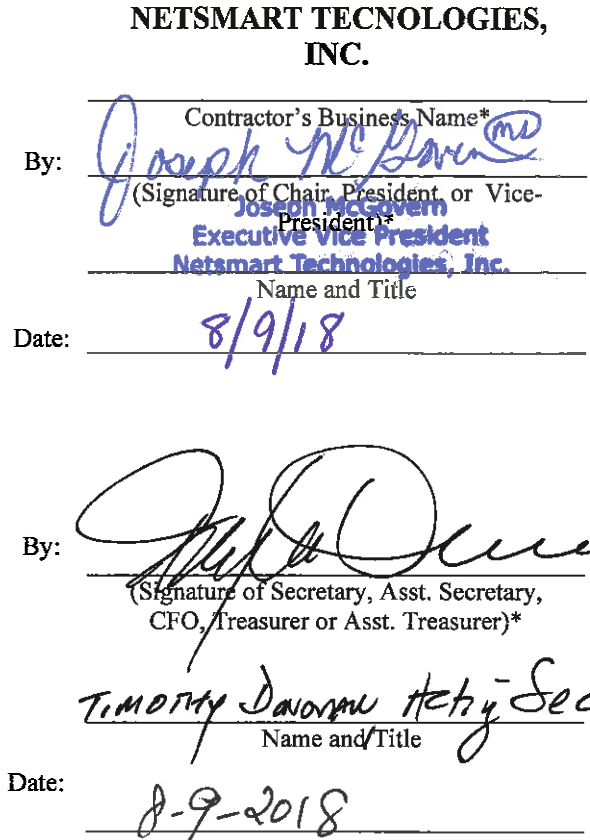 NETSMART TECNOLOGIES,
INC.
Contractor's Business Name*
By: Joseph McGovern MD
(Signature of Chair, President, or Vice-
Joseph McGovern
President)*
Executive Vice President
Netsmart Technologies, Inc.
Name and Title
Date: 8/9/18
By:
(Signature of Secretary, Asst. Secretary,
CFO, Treasurer or Asst. Treasurer)*
Timothy Donovan Acting Sec
Name and Title
Date: 8-9-2018